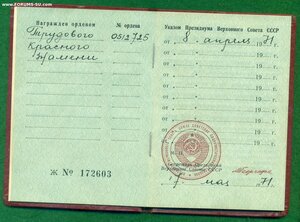 www.FORUMS-SU.com
Награжден орденом № ордена
Трудового 0512725
Красного
Знамени
Ж № 172603
Указом Президиума Верховного Совета СССР
от 8 апреля 1971 г.
от 19 г.
от 19 г.
от 19 г.
от 19 г.
от 19 г.
от 19 г.
Секретарь Президиума
Верховного Совета СССР
7 мая 1971 г.